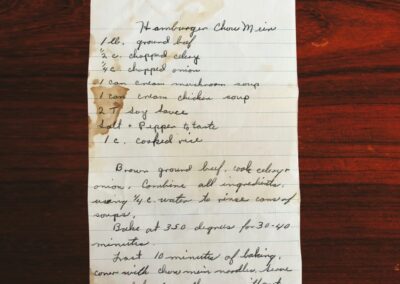 Hamburger Chow Mein
1 lb. ground beef
1/2 c. chopped celery
1/4 c. chopped onion
1 can cream mushroom soup
1 can cream chicken soup
2 T soy sauce
Salt + Pepper to taste
1 c. cooked rice
Brown ground beef, cook celery +
onion. Combine all ingredients,
using 1/4 c. water to rinse cans of
soups.
Bake at 350 degrees for 30-40
minutes.
Last 10 minutes of baking,
cover with chow mein noodles. Serve